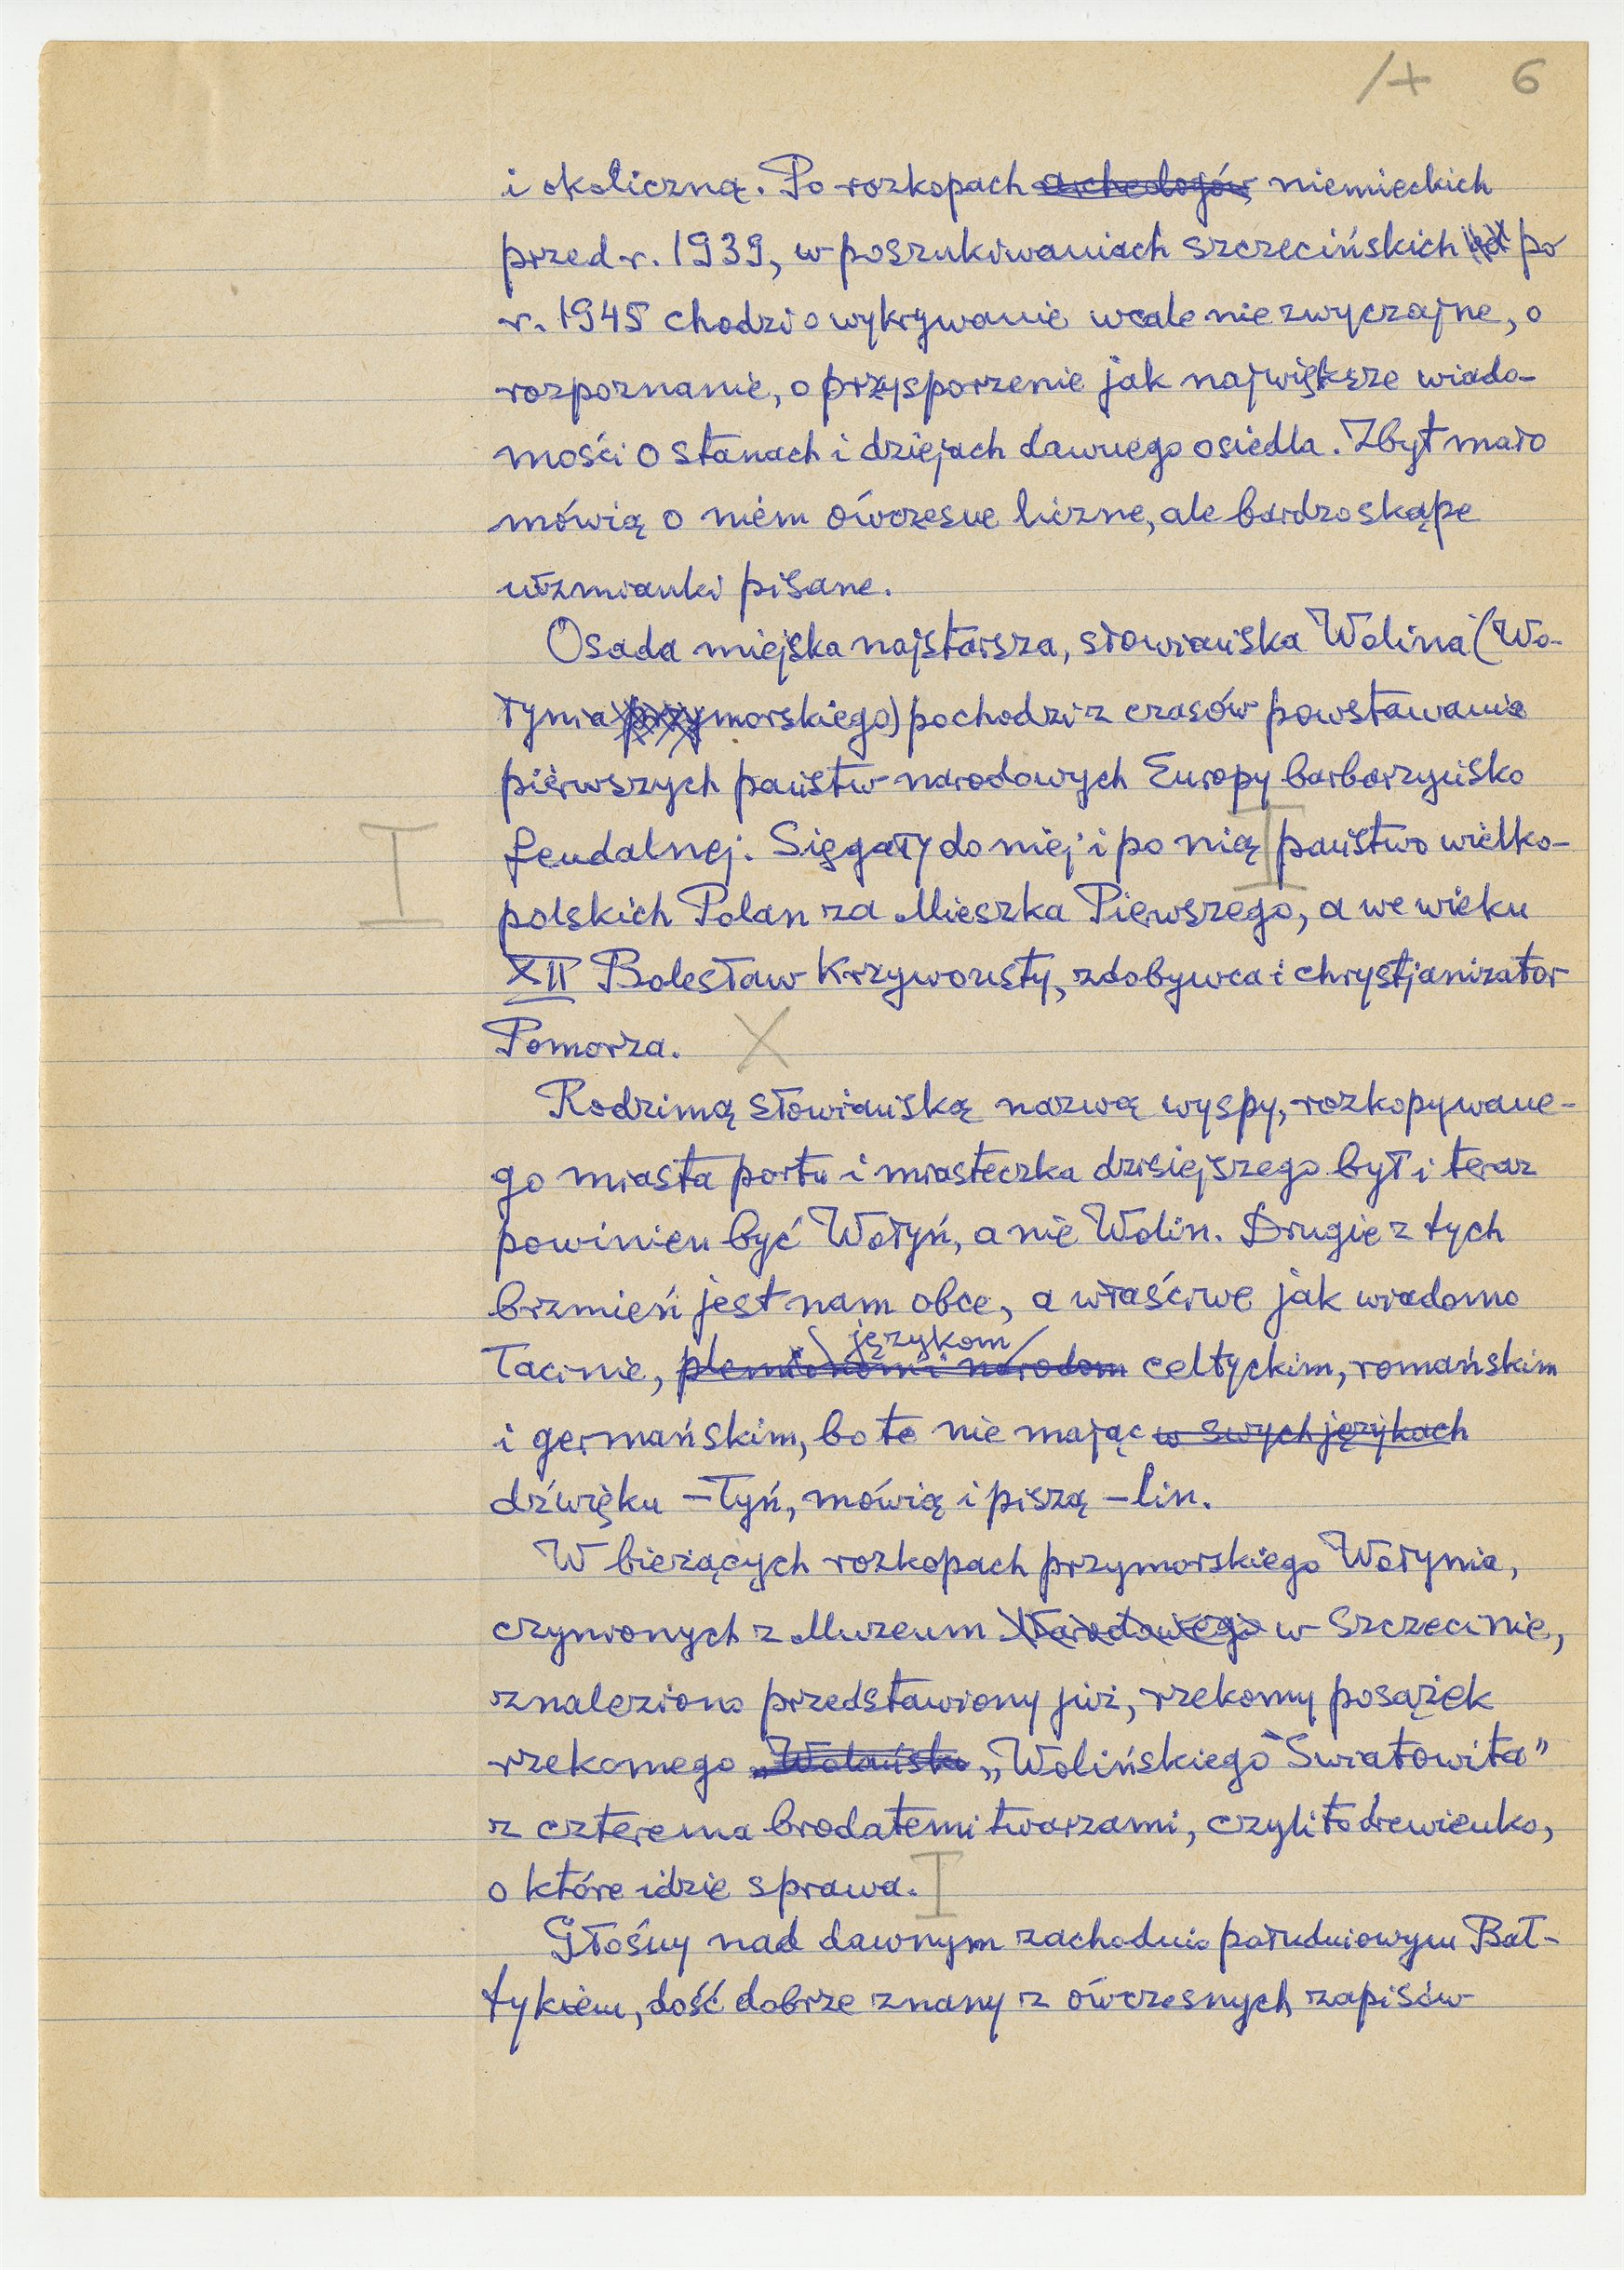 /+ 6
i okoliczną. Po rozkopach archeologów niemieckich
przed r. 1939, w poszukiwaniach szczecińskich po
r. 1945 chodzi o wykrywanie wcale nie zwyczajne, o
rozpoznanie, o przysporzenie jak największe wiado-
mości o stanach i dziejach dawnego osiedla. Zbyt mało
mówią o niem ówczesne liczne, ale bardzo skąpe
wzmianki pisane.
Osada miejska najstarsza, słowiańska Wolina (Wo-
łynia przymorskiego) pochodzi z czasów powstawania
pierwszych państw narodowych Europy barbarzyńsko
feudalnej. Sięgały do niej i po nią państwo wielko-
polskich Polan za Mieszka Pierwszego, a we wieku
XII Bolesław Krzywousty, zdobywca i chrystjanizator
Pomorza. X
Rodzimą słowiańską nazwą wyspy, rozkopywane-
go miasta portu i miasteczka dzisiejszego był i teraz
powinien być Wołyń, a nie Wolin. Drugie z tych
brzmień jest nam obce, a właściwe jak wiadomo
językom
łacinie, plemionom i narodom celtyckim, romańskim
i germańskim, bo te nie mając w swych językach
dźwięku –łyń, mówią i piszą –lin.
W bieżących rozkopach przymorskiego Wołynia,
czynionych z Muzeum Narodowego w Szczecinie,
znaleziono przedstawiony już, rzekomy posążek
rzekomego „Wolińskiego Światowita”
z czterema brodatemi twarzami, czyli to drewienko,
o które idzie sprawa.
Głośny nad dawnym zachodnio południowym Bał-
tykiem, dość dobrze znany z ówczesnych zapisów